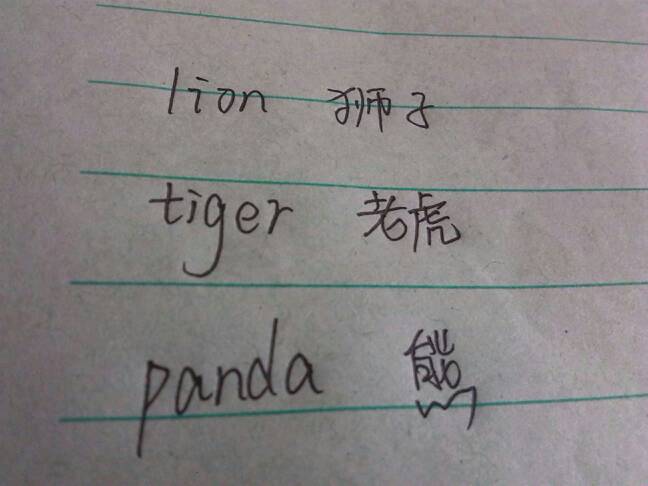 lion 狮子
tiger 老虎
panda 熊